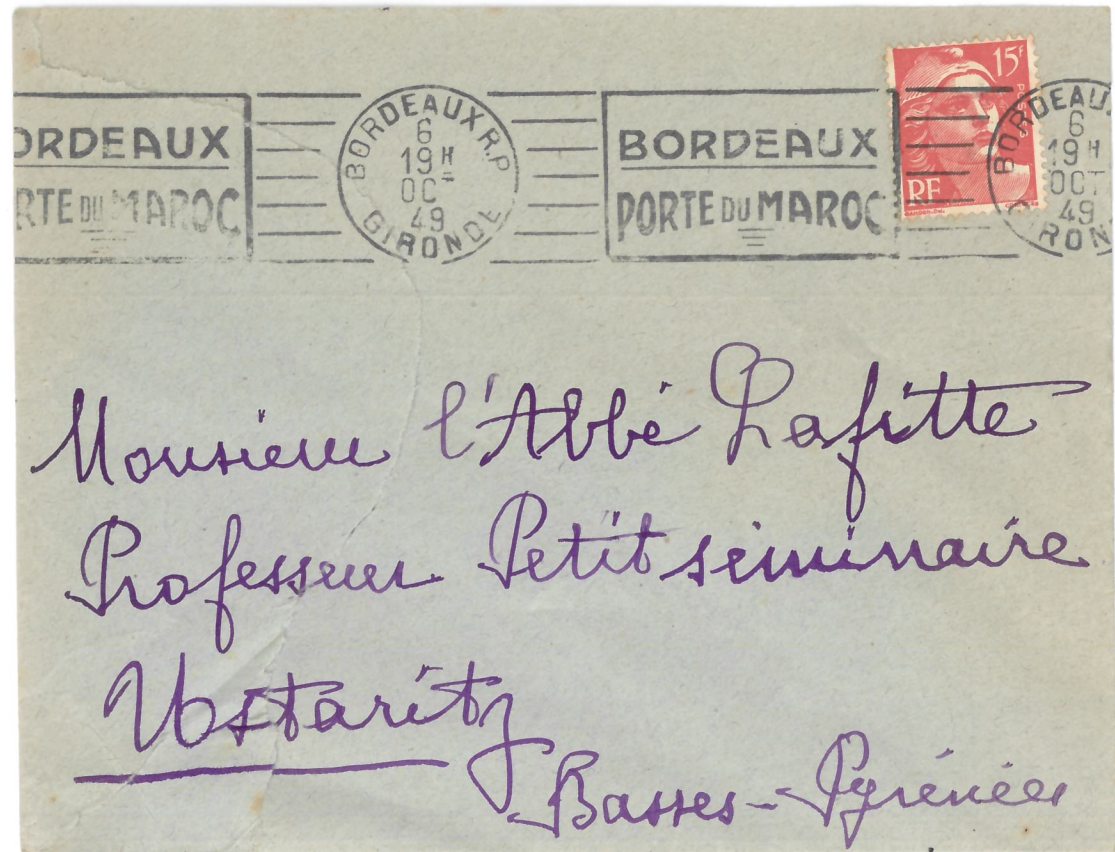 ORDEAUX
RTE DU MAROC
BORDEAUX R.P
6
19 H
OC
49
GIRONDE
BORDEAUX
PORTE DU MAROC
15F
RF
BORDEAU
6
19 H
OCT
49
IRON
Monsieur l'Abbé Lafitte
Professeur Petit séminaire
Ustaritz
Basses-Pyrénées